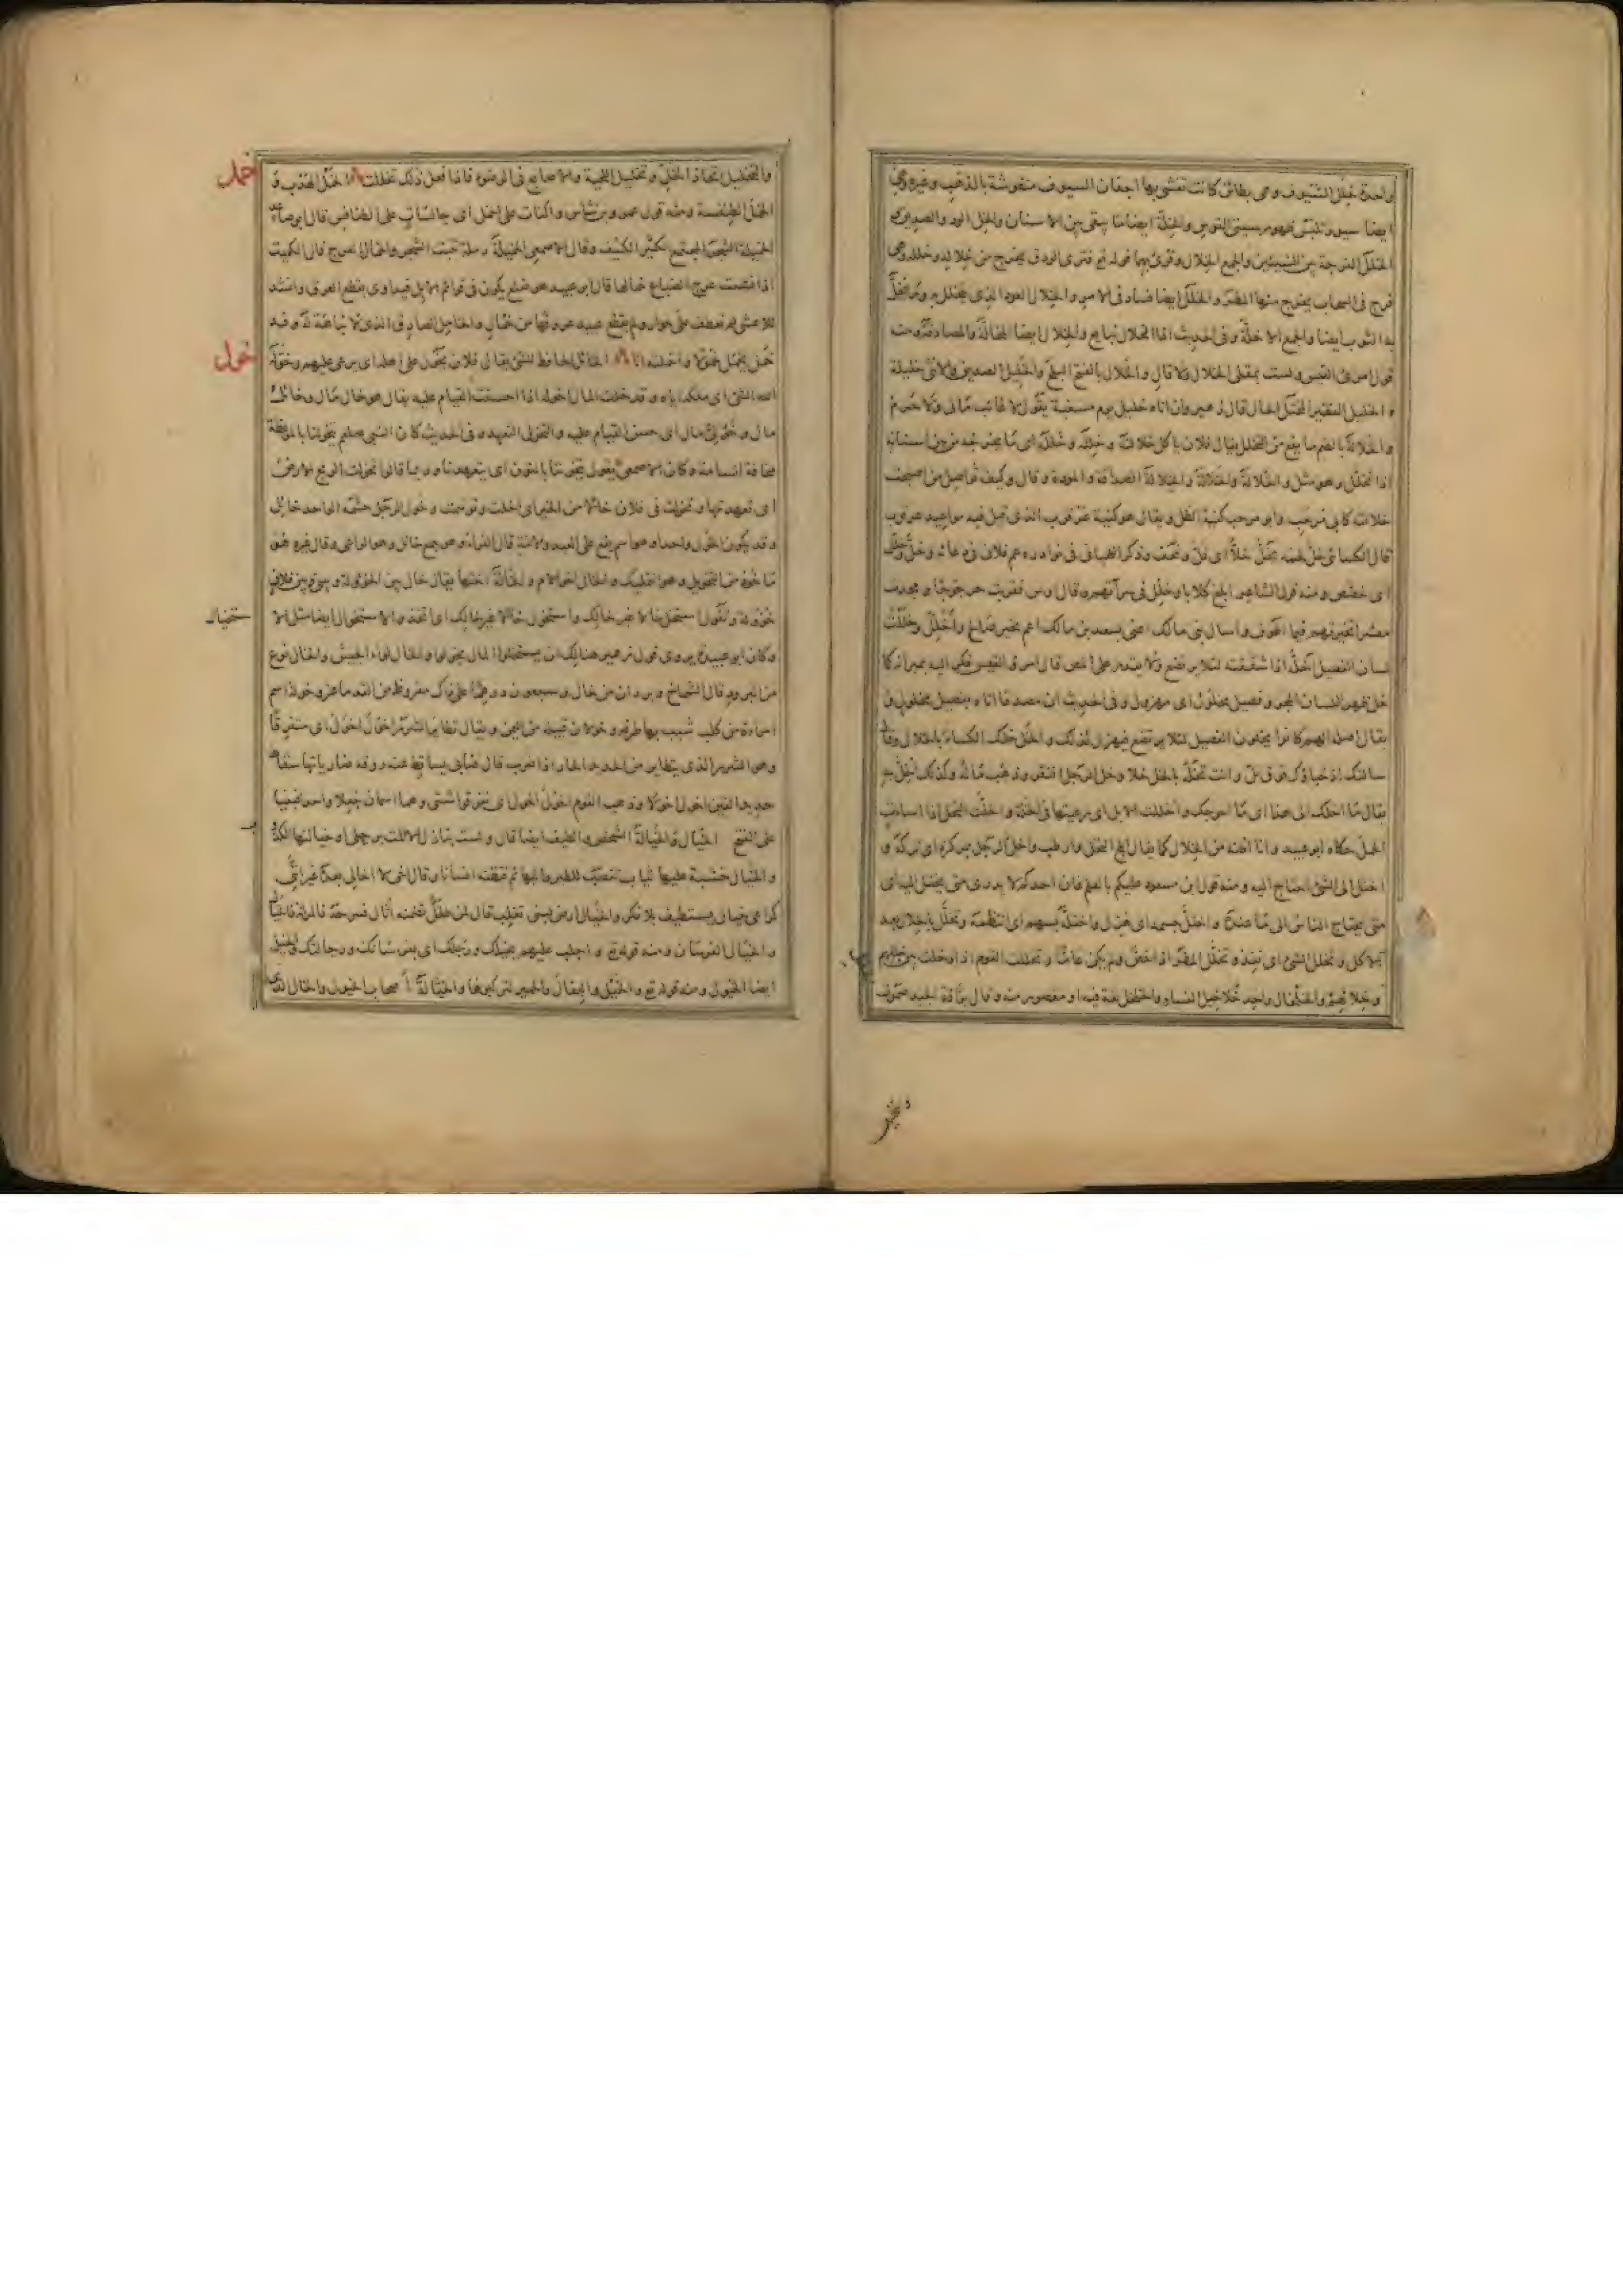 واحدة خلل السيوف وهى بطائن كانت تغشى بها اجفان السيوف منقوشة بالذهب وغيره وهى
ايضا سيور تلبس ظهور سيتى القوس والخلة ايضا ما يبقى بين الاسنان والخل الود والصديق
الخلل الفرجة بين الشيئين والجمع الخلال وقرئ بهما قوله تع فترى الودق يخرج من خلاله وخلله وهى
فرج فى السحاب يخرج منها المطر والخلل ايضا فساد فى الامر والخلال العود الذى يتخلل به وما يخل
به الثوب ايضا والجمع الاخلة وفى الحديث اذا الخلال نبايع والخلال ايضا المخالة والمصادقة ومنه
قول امرئ القيس ولست بمقلى الخلال ولا قال والخلال بالفتح البلح والخليل الصديق والانثى خليلة
والخليل الفقير المختل الحال قال زهير وان اتاه خليل يوم مسغبة يقول لا غائب مالى ولا حرم
والخلالة بالضم ما يقع من التخلل يقال فلان ياكل خلالته وخلله وخلته اى ما يخرجه من بين اسنانه
اذا تخلل وهو مثل والخلالة والخلالة والخلالة الصداقة والمودة وقال وكيف تواصل من اصبحت
خلالته كابى مرحب وابو مرحب كنية الظل ويقال هو كنية عرقوب الذى قيل فيه مواعيد عرقوب
قال الكسائى خل لحمه يخل خلا اى قل ونحف وذكر اللحيانى فى نوادره عم فلان فى دعائه وخل وخلل
اى خصص ومنه قول الشاعر ابلغ كلابا وخلل فى سراتهم وقال
معشرا تخيرتهم فيما اطوف واسال بنى مالك اعنى بسعد بن مالك اعم بخير صالح واخلل وخللت
لسان الفصيل اخله اذا شققته لئلا يرتضع ولا يقدر على المص قال امرؤ القيس فكر اليه بمبراته كما
خل ظهر اللسان المجر وفصيل مخلول اى مهزول وفى الحديث ان مصدقا اتاه بفصيل مخلول و
يقال اصله انهم كانوا يخلون الفصيل لئلا يرتضع فيهزل لذلك والخل خلك الكساء بالخلال وقال
سالتك اذ خباؤك فوق تل وانت تخله بالخل خلا وخل الرجل افتقر وذهب ماله وكذلك اخل به
يقال ما اخلك الى هذا اى ما احوجك واخللت الابل اى رعيتها فى الخلة واخلت النخل اذا اساءت
الحمل حكاه ابو عبيد وانا اظنه من الخلال كما يقال ابلح النخل وارطب واخل الرجل بمركزه اى تركه و
اختل الى الشئ احتاج اليه ومنه قول ابن مسعود عليكم بالعلم فان احدكم لا يدرى متى يختل اليه اى
متى يحتاج الناس الى ما عنده واختل جسمه اى هزل واختله بسهم اى انتظمه وتخلل بالخلال بعد
الاكل وتخلل الشئ اى نفذ وتخلل المطر اذا خص ولم يكن عاما وتخللت القوم اذا دخلت بين خللهم
وخلالهم والخلخال واحد خلاخيل النساء والخلخل لغة فيه او مقصور منه وقال براقة الجيد صموت
والتخليل اتخاذ الخل وتخليل اللحية والاصابع فى الوضوء فاذا فعل ذلك تخللت الخمل الهدب و
خمل
الخمل الطنفسة ومنه قول عمرو بن شاس اى جالسات على الطنافس قال ابو صاعد
الخميلة الشجر المجتمع الكثير الكثيف وقال الاصمعى الخميلة رملة تنبت الشجر والخمال العرج قال الكميت
اذا نسيت عرج الضباع خمالها قال ابو عبيد هو ضلع يكون فى قوائم الابل فيداوى بقطع العرق وانشد
للاعشى لم تعطف على حوار ولم يقطع عبيد عروقها من خمال والخامل الساقط الذى لا نباهة له وقد
خمل يخمل خمولا واخملته انا الخائل الحافظ للشئ يقال فلان يخول على اهله اى يرعى عليهم وخوله
خول
الله الشئ اى ملكه اياه وقد خلت المال اخوله اذا احسنت القيام عليه يقال هو خال مال وخائل
مال وخولى مال اى حسن القيام عليه والتخول التعهد وفى الحديث كان النبى صلعم يتخولنا بالموعظة
مخافة السامة وكان الاصمعى يقول يتخوننا بالنون اى يتعهدنا وربما قالوا تخولت الريح الارض
اى تعهدتها وتخولت فى فلان خالا من الخير اى اخلت وتوسمت وخول الرجل حشمه الواحد خائل
وقد يكون الخول واحدا وهو اسم يقع على العبد والامة قال الفراء وهو جمع خائل وهو الراعى وقال غيره هو
ماخوذ من التخويل وهو التمليك والخال اخو الام والخالة اختها يقال خال بين الخؤولة وبينى وبين فلان
خؤولة وتقول استخل خالا غير خالك واستخول خالا غير خالك اى اتخذ والاستخوال ايضا مثل الا
ستخبال
وكان ابو عبيدة يروى قول زهير هنالك ان يستخولوا المال يخولوا والخال لواء الجيش والخال نوع
من البرود قال الشماخ وبردان من خال وسبعون درهما على ذاك مقروظ من القد ماعز وخولة اسم
امراة من كلب شبب بها طرفة وخولان قبيلة من اليمن ويقال تطاير الشرر اخول اخول اى متفرقا
وهو الشرر الذى يتطاير من الحديد الحار اذا ضرب قال ضابى يساقط عنه روقه ضارياتها سقاط
حديد القين اخول اخولا وذهب القوم اخول اخول اى تفرقوا شتى وهما اسمان جعلا واحدا وبنيا
على الفتح الخيال والخيالة الشخص والطيف ايضا قال ولست بنازل الا المت برحلى او خيالتها الكذ
والخيال خشبة عليها ثياب سود تنصب للطير والبهائم فتظنه انسانا وقال اخى لا اخا لى بعده غير اننى
كراعى خيال يستطيف بلا فكر والخيال ارض لبنى تغلب قال
والخيال الفرسان ومنه قوله تع واجلب عليهم بخيلك ورجلك اى بفرسانك ورجالتك والخيل
ايضا الخيول ومنه قوله تع والخيل والبغال والحمير لتركبوها والخيالة اصحاب الخيول والخال الذى